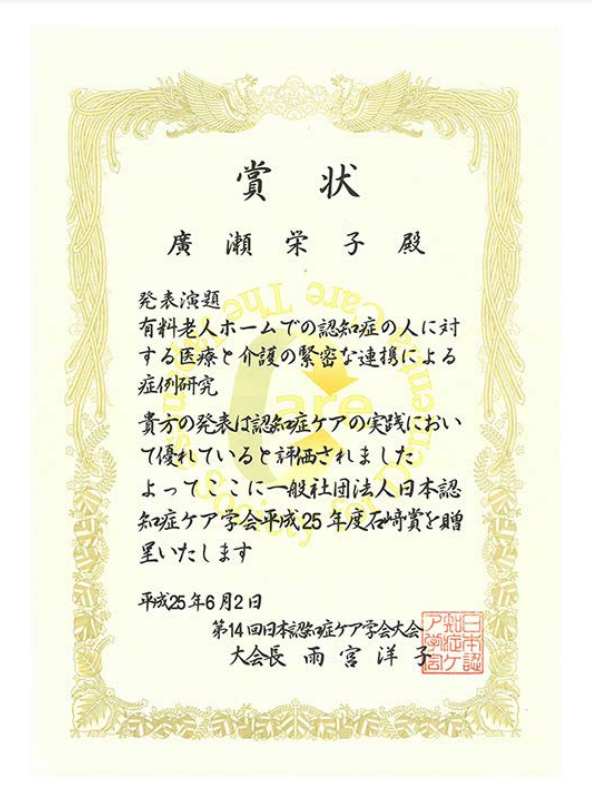 賞状
廣瀬栄子殿
発表演題
有料老人ホームでの認知症の人に対
する医療と介護の緊密な連携による
症例研究
貴方の発表は認知症ケアの実践におい
て優れていると評価されました
よってここに一般社団法人日本認
知症ケア学会平成25年度石﨑賞を贈
呈いたします
平成25年6月2日
第14回日本認知症ケア学会大会
大会長 雨宮洋子
日本認
知症ケ
ア学会
Care